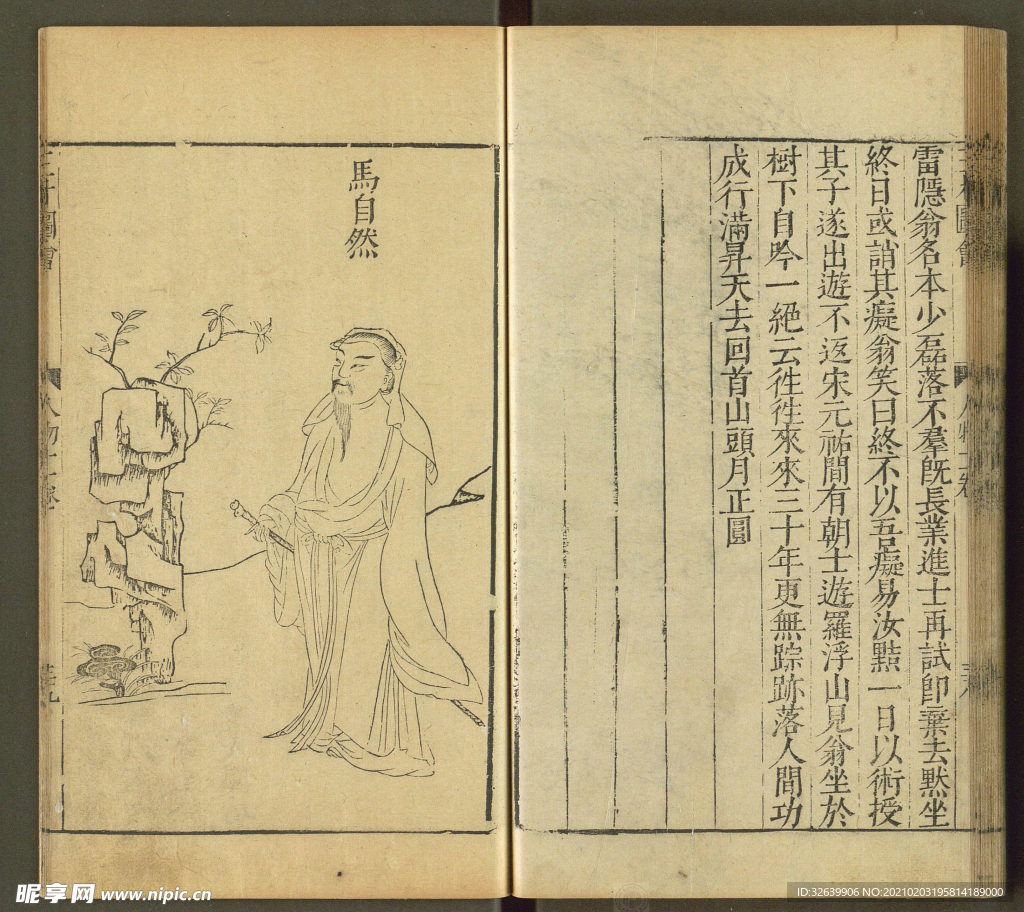 雷隱翁名本少磊落不羣旣長業進士再試卽棄去默坐
終日或誚其癡翁笑曰終不以吾癡易汝黠一日以術授
其子遂出遊不返宋元祐間有朝士遊羅浮山見翁坐於
樹下自吟一絕云徃徃來來三十年更無踪跡落人間功
成行滿昇天去回首山頭月正圓
馬自然
圖會
人物
昵享网 www.nipic.cn
ID:32639906 NO:20210203195814189000